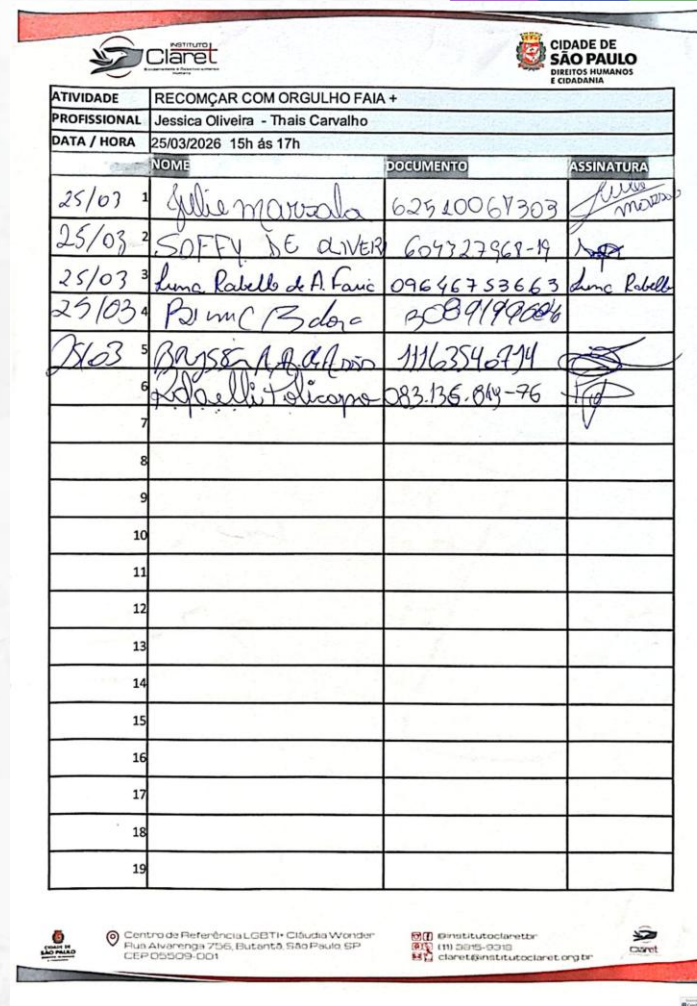 INSTITUTO
Claret
CIDADE DE
SÃO PAULO
DIREITOS HUMANOS
E CIDADANIA
ATIVIDADE RECOMÇAR COM ORGULHO FAIA +
PROFISSIONAL Jessica Oliveira - Thais Carvalho
DATA / HORA 25/03/2026 15h ás 17h
NOME DOCUMENTO ASSINATURA
25/03 1 Julie marzala
25/03 2 SOFFY DE OLIVER
25/03 3 Luna Rabello de A. Faria 09646753663 Luna Rabello
25/03 4
25/03 5
6 Rafaelli Policarpo 083.136.819-76
7
8
9
10
11
12
13
14
15
16
17
18
19
CIDADE DE
SÃO PAULO
Centro de Referência LGBTI+ Cláudia Wonder
Rua Alvarenga 756, Butantã, São Paulo SP
CEP 05509-001
@institutoclaretbr
(11) 3815-9319
claret@institutoclaret.org.br
Claret